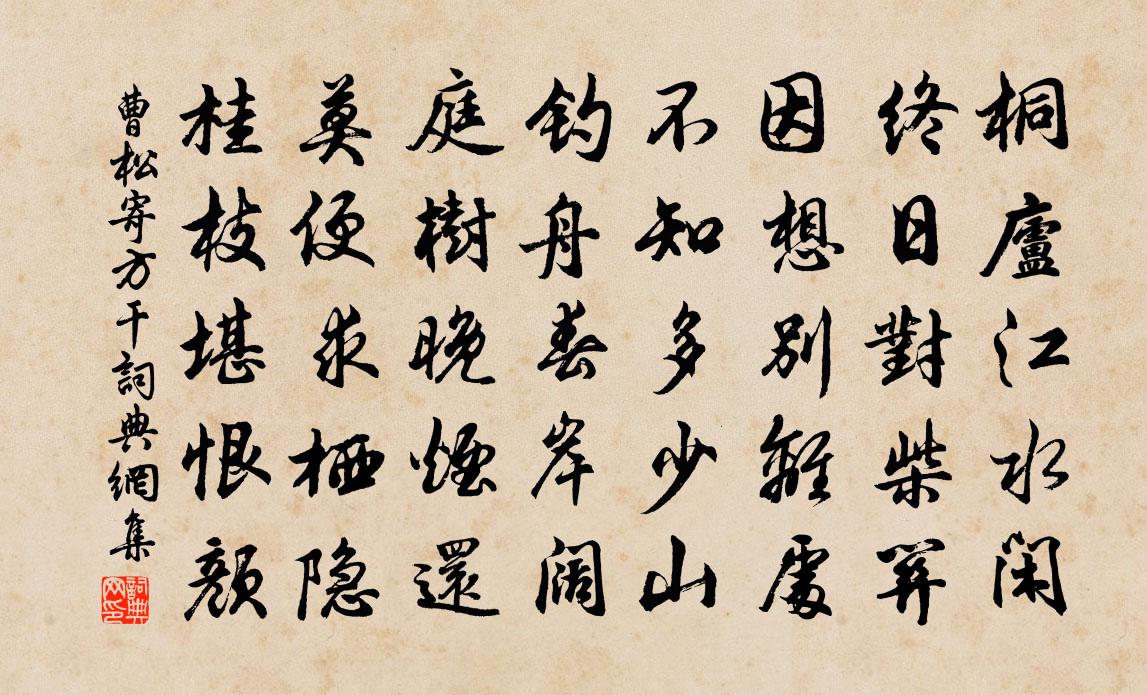 桐廬江水閑
終日對柴關
因想別離處
不知多少山
釣舟春岸闊
庭樹晚煙還
莫便求栖隐
桂枝堪恨顔
曹松寄方干詞典網集
詞典網印